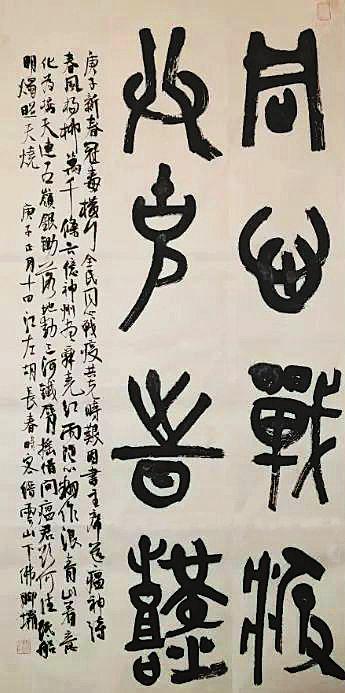 同心戰疫
共克旹艱
庚子新春冠毒橫行全民同心戰疫共克時艱因書主席送瘟神詩
春風楊柳萬千條六億神州盡舜堯紅雨隨心翻作浪青山着意
化為橋天連五嶺銀鋤落地動三河鐵臂搖借問瘟君欲何往紙船
明燭照天燒 庚子正月十四江左胡長春時客縉雲山下佛腳